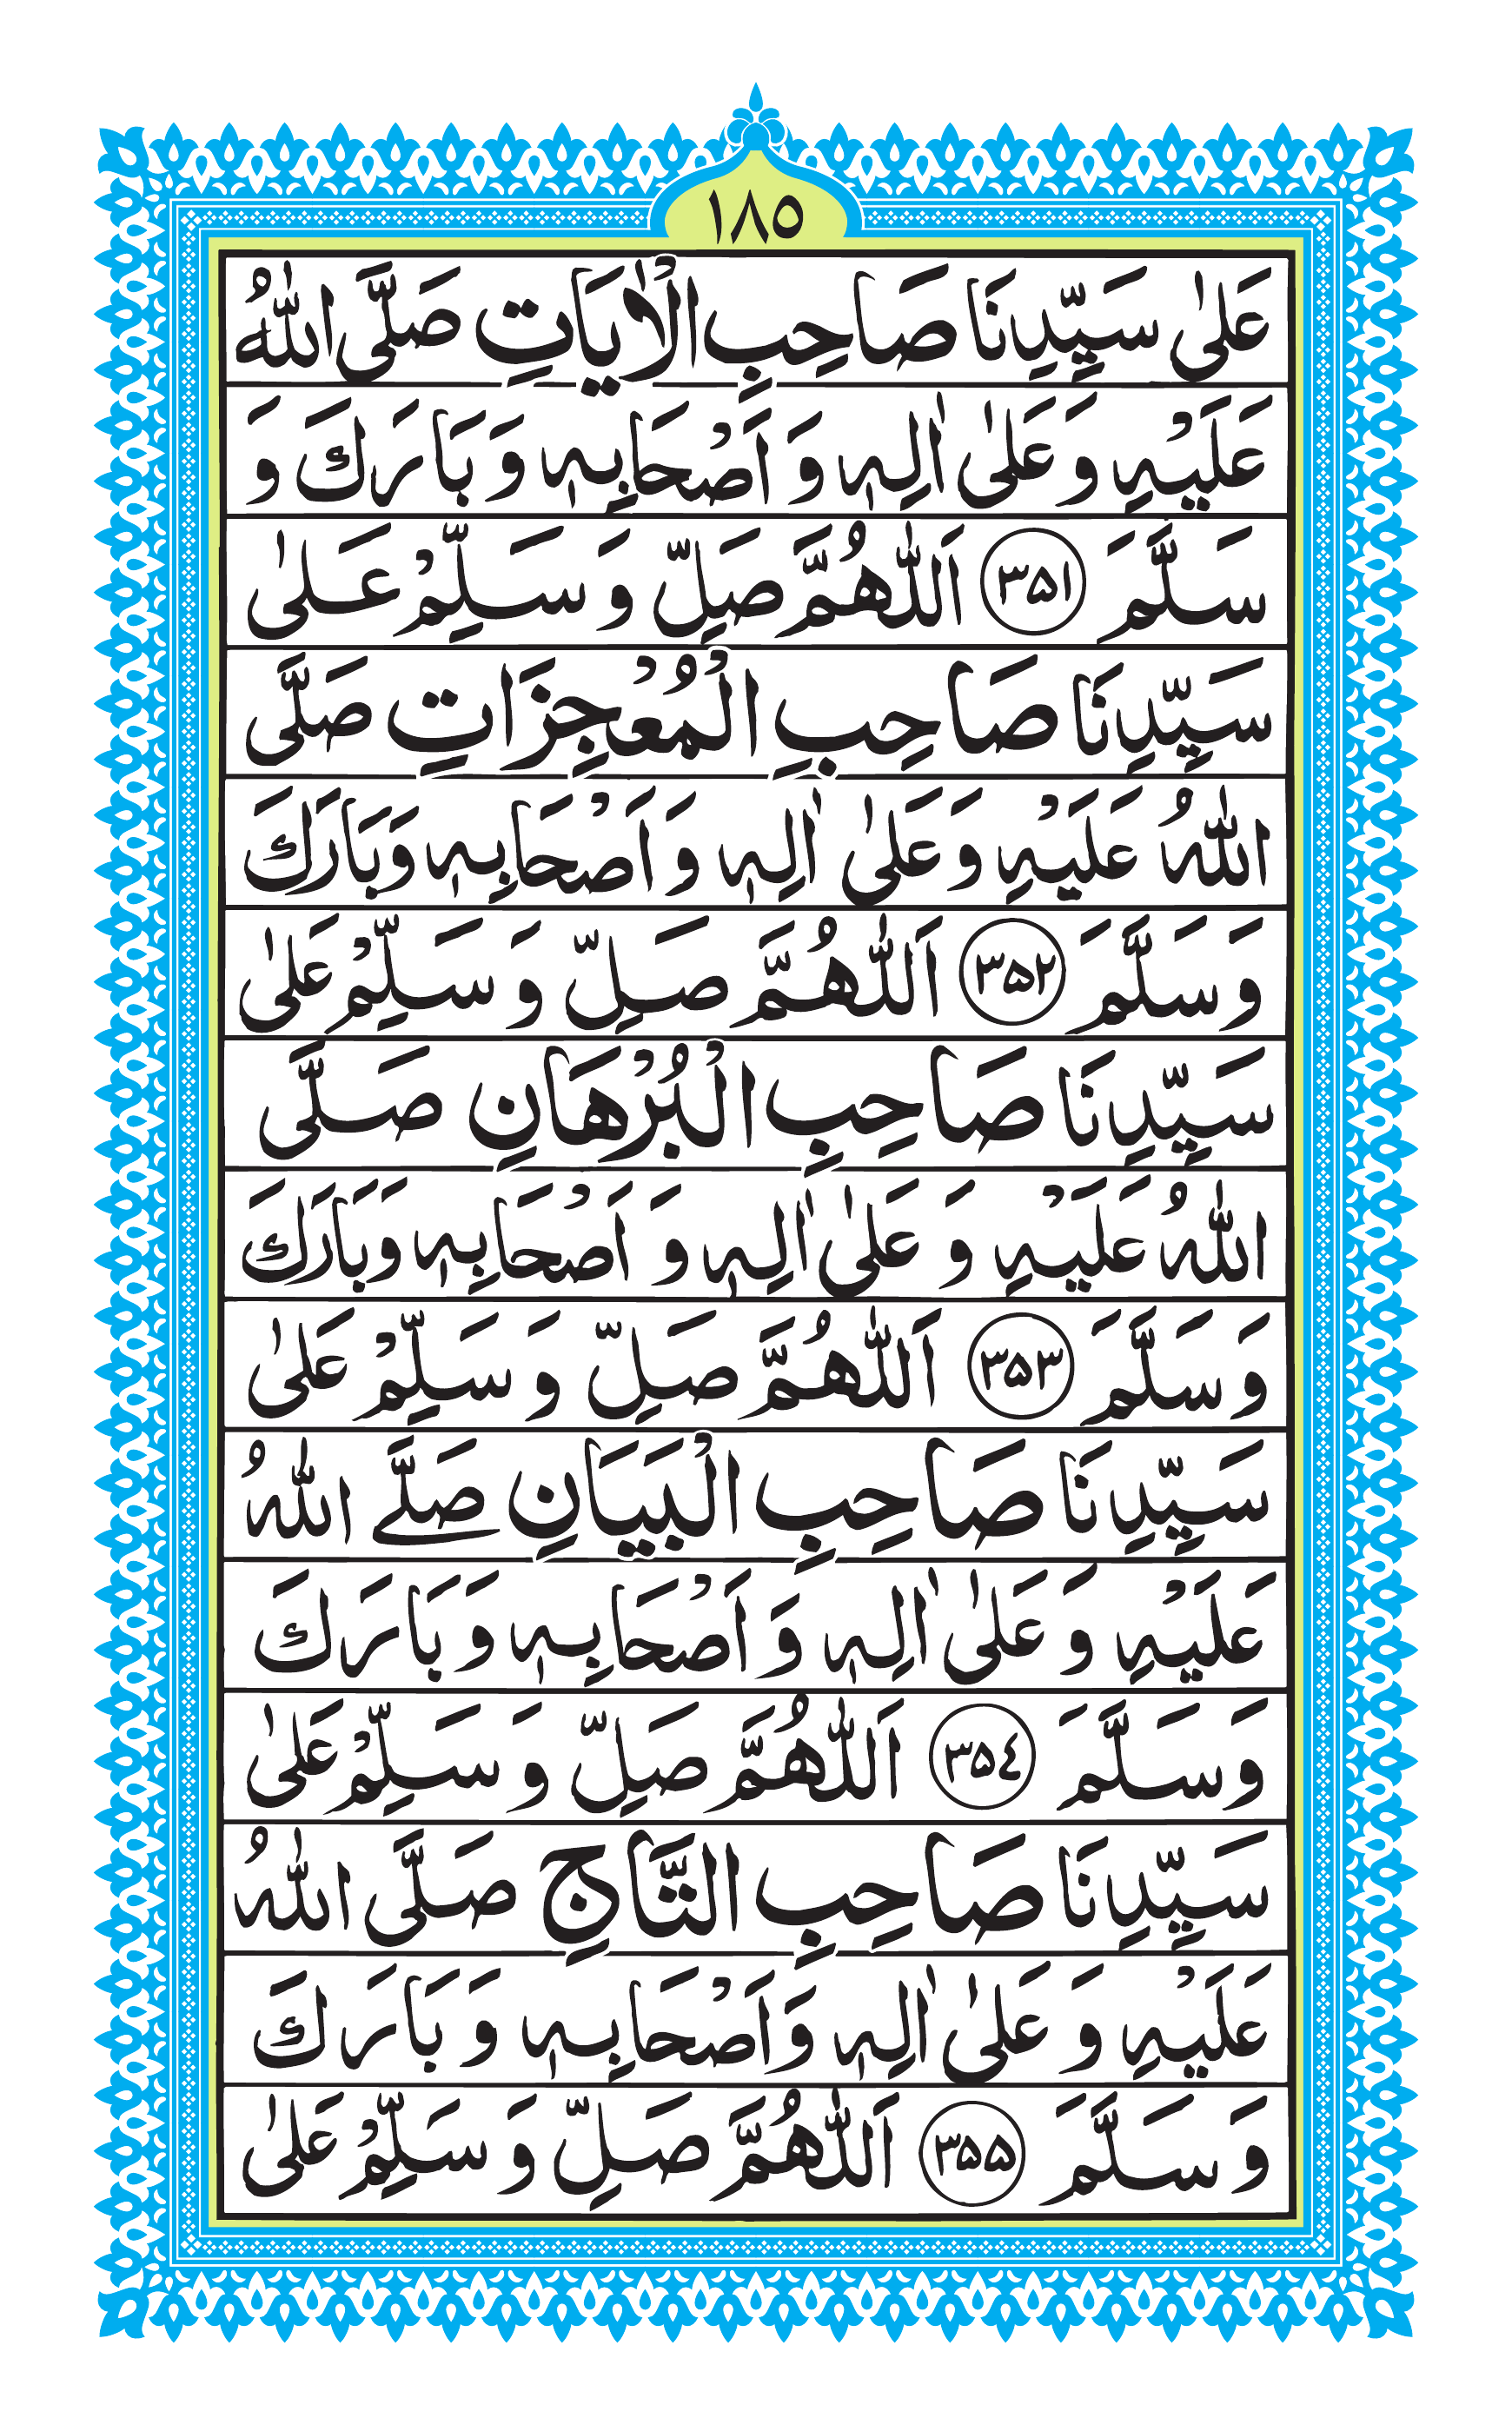 ١٨٥
عَلٰى سَيِّدِنَا صَاحِبِ الْاٰيَاتِ صَلَّى اللّٰهُ
عَلَيْهِ وَعَلٰى اٰلِهٖ وَ اَصْحَابِهٖ وَ بَارَكَ وَ
سَلَّمَ ۳۵۱ اَللّٰهُمَّ صَلِّ وَ سَلِّمْ عَلٰى
سَيِّدِنَا صَاحِبِ الْمُعْجِزَاتِ صَلَّى
اللّٰهُ عَلَيْهِ وَعَلٰى اٰلِهٖ وَ اَصْحَابِهٖ وَبَارَكَ
وَ سَلَّمَ ۳۵۲ اَللّٰهُمَّ صَلِّ وَ سَلِّمْ عَلٰى
سَيِّدِنَا صَاحِبِ الْبُرْهَانِ صَلَّى
اللّٰهُ عَلَيْهِ وَ عَلٰى اٰلِهٖ وَ اَصْحَابِهٖ وَبَارَكَ
وَ سَلَّمَ ۳۵۳ اَللّٰهُمَّ صَلِّ وَ سَلِّمْ عَلٰى
سَيِّدِنَا صَاحِبِ الْبَيَانِ صَلَّے اللّٰهُ
عَلَيْهِ وَ عَلٰى اٰلِهٖ وَ اَصْحَابِهٖ وَ بَارَكَ
وَسَلَّمَ ۳۵٤ اَللّٰهُمَّ صَلِّ وَ سَلِّمْ عَلٰى
سَيِّدِنَا صَاحِبِ التَّاجِ صَلَّى اللّٰهُ
عَلَيْهِ وَ عَلٰى اٰلِهٖ وَاَصْحَابِهٖ وَ بَارَكَ
وَ سَلَّمَ ۳۵۵ اَللّٰهُمَّ صَلِّ وَ سَلِّمْ عَلٰى